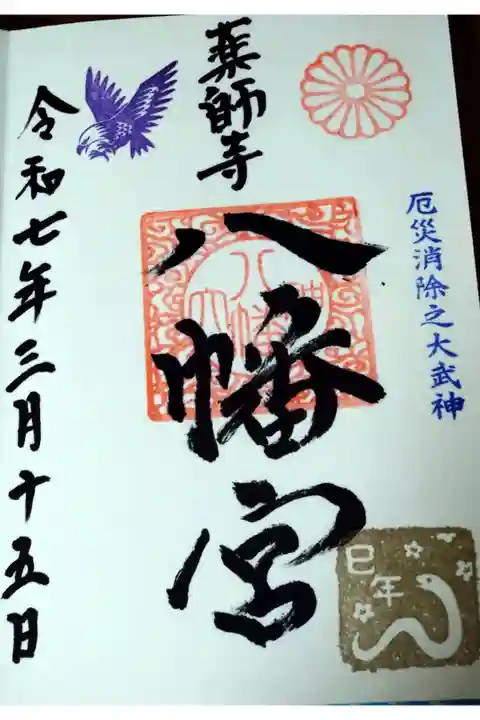 厄災消除之大武神
薬師寺
八幡宮
令和七年三月十五日
巳年